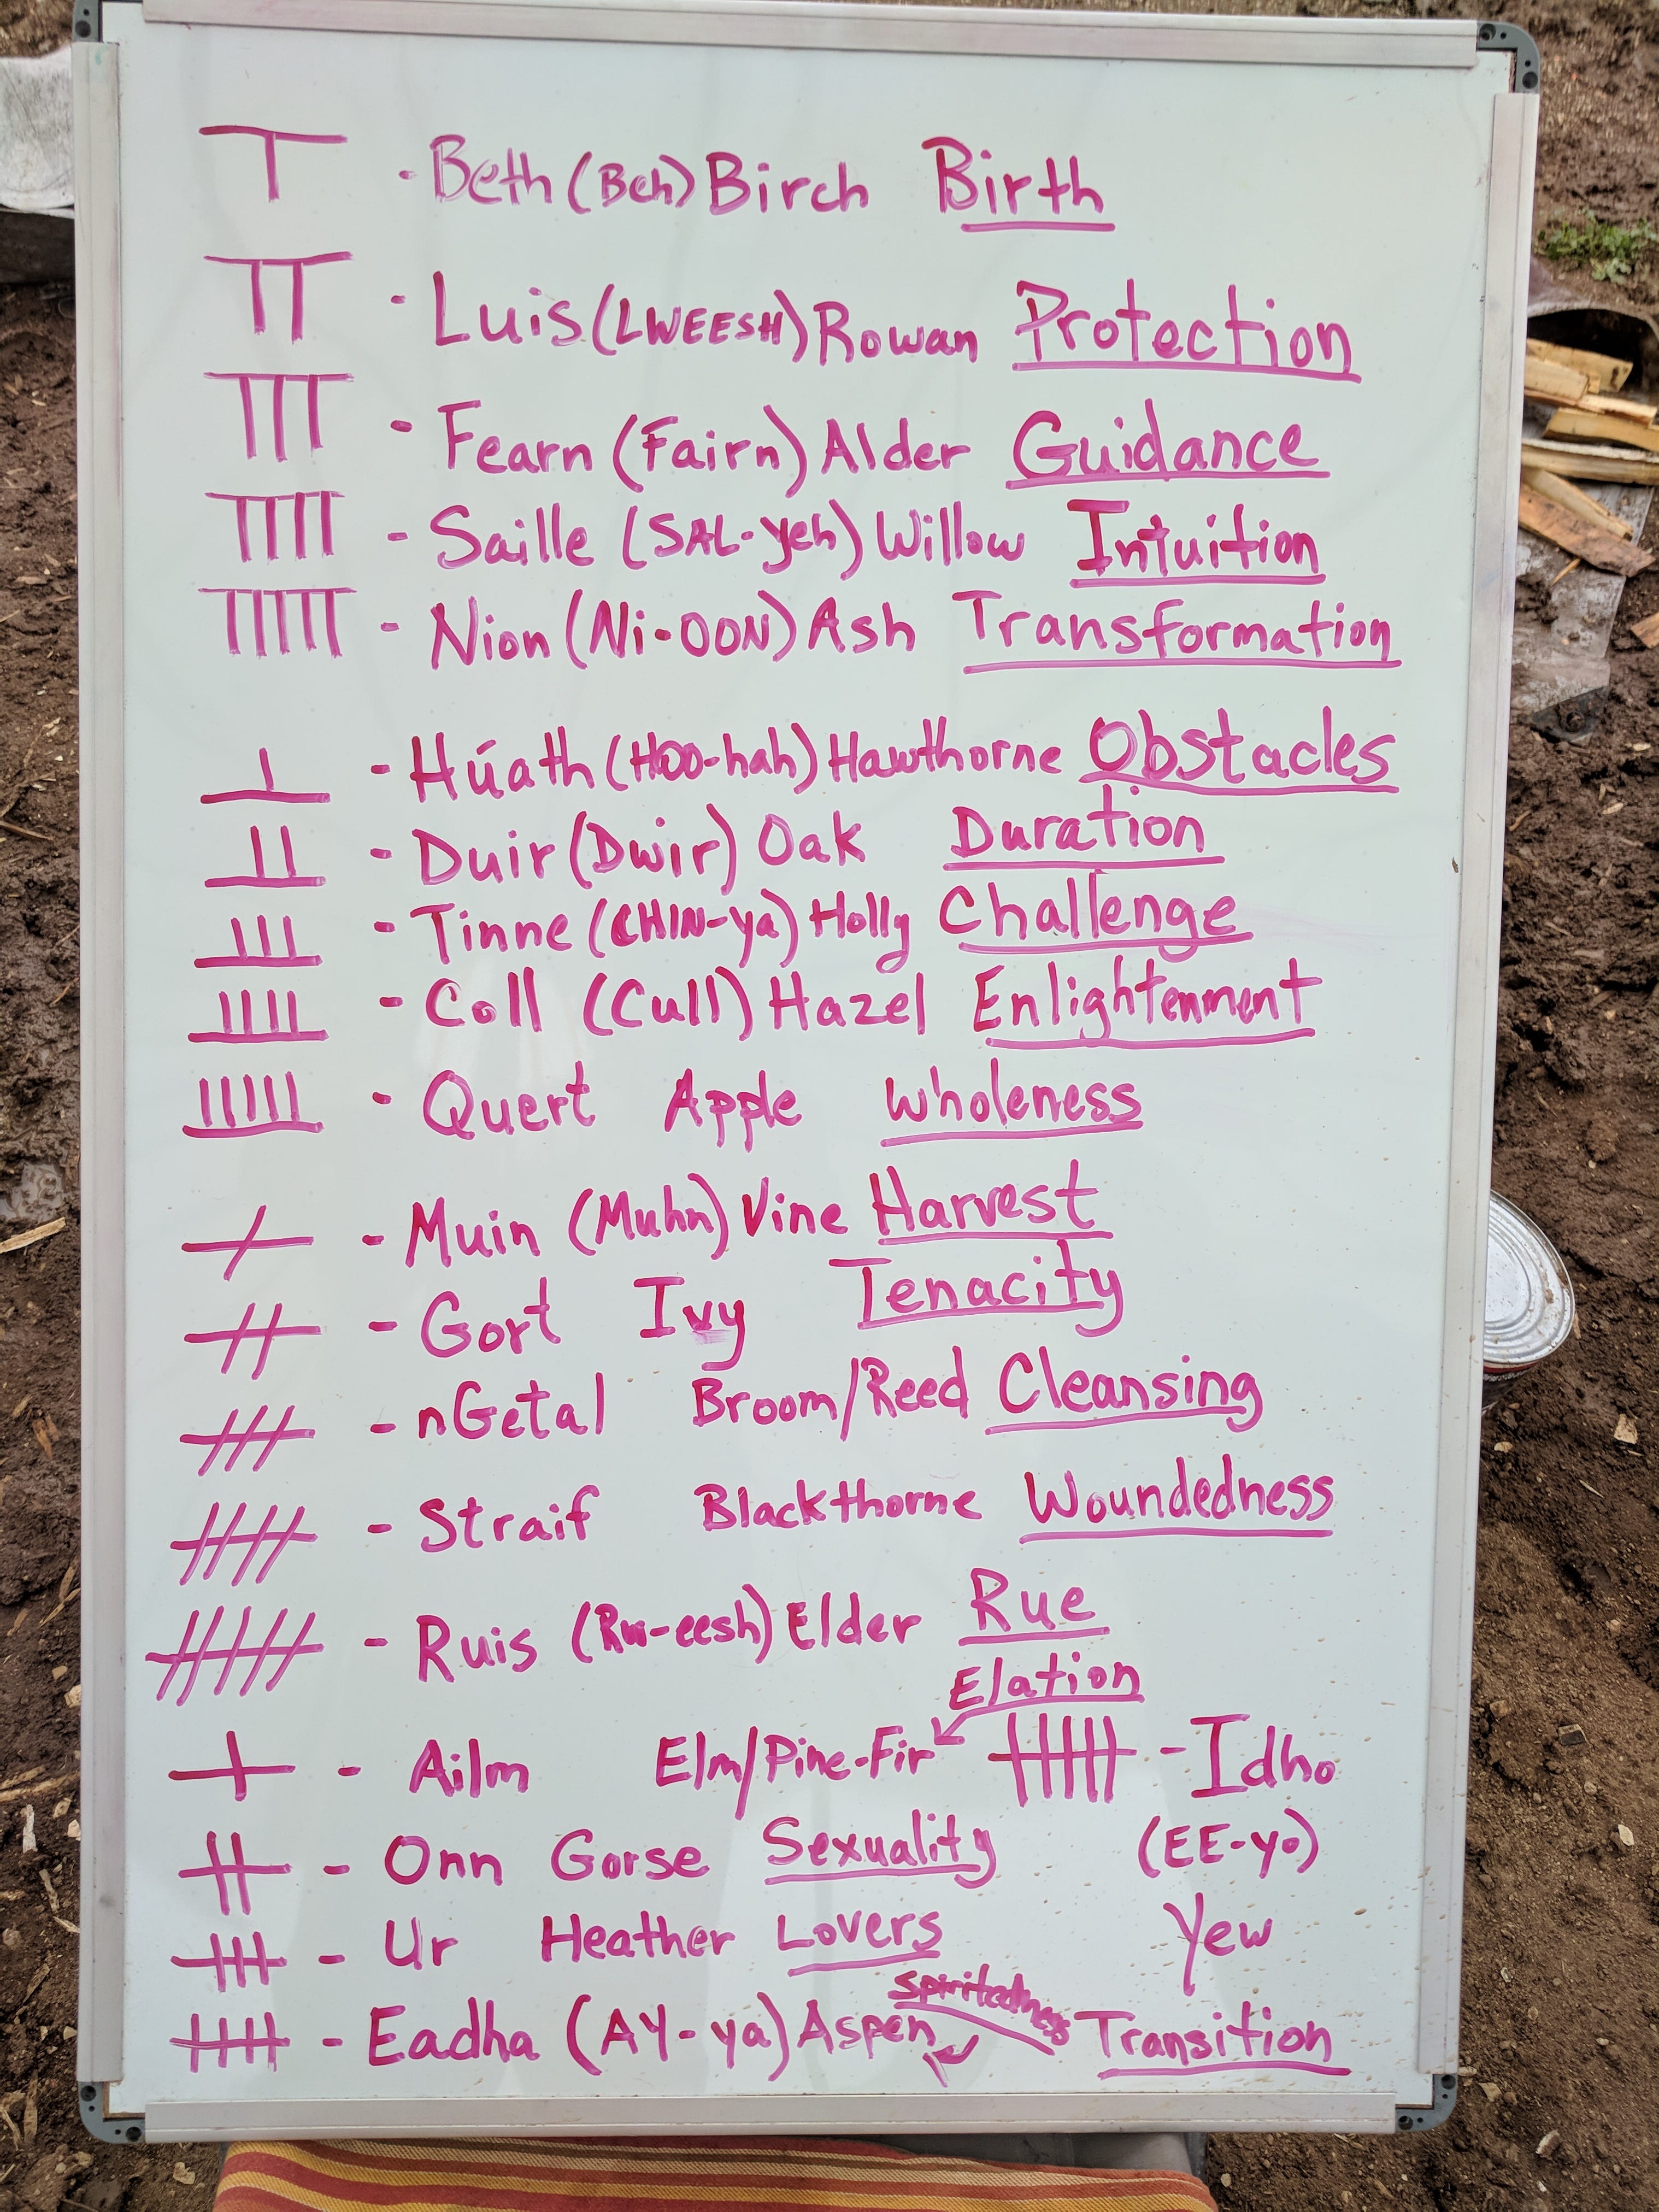 - Beth (Beh) Birch Birth
- Luis (LWEESH) Rowan Protection
- Fearn (Fairn) Alder Guidance
- Saille (SAL-yeh) Willow Intuition
- Nion (Ni-OON) Ash Transformation
- Húath (HOO-hah) Hawthorne Obstacles
- Duir (Dwir) Oak Duration
- Tinne (CHIN-ya) Holly Challenge
- Coll (Cull) Hazel Enlightenment
- Quert Apple Wholeness
- Muin (Muhn) Vine Harvest
- Gort Ivy Tenacity
- nGetal Broom/Reed Cleansing
- Straif Blackthorne Woundedness
- Ruis (Rw-eesh) Elder Rue
Elation
- Ailm Elm/Pine-Fir
- Onn Gorse Sexuality
- Ur Heather Lovers
- Eadha (AY-ya) Aspen Spiritedness
- Idho
(EE-yo)
Yew
Transition